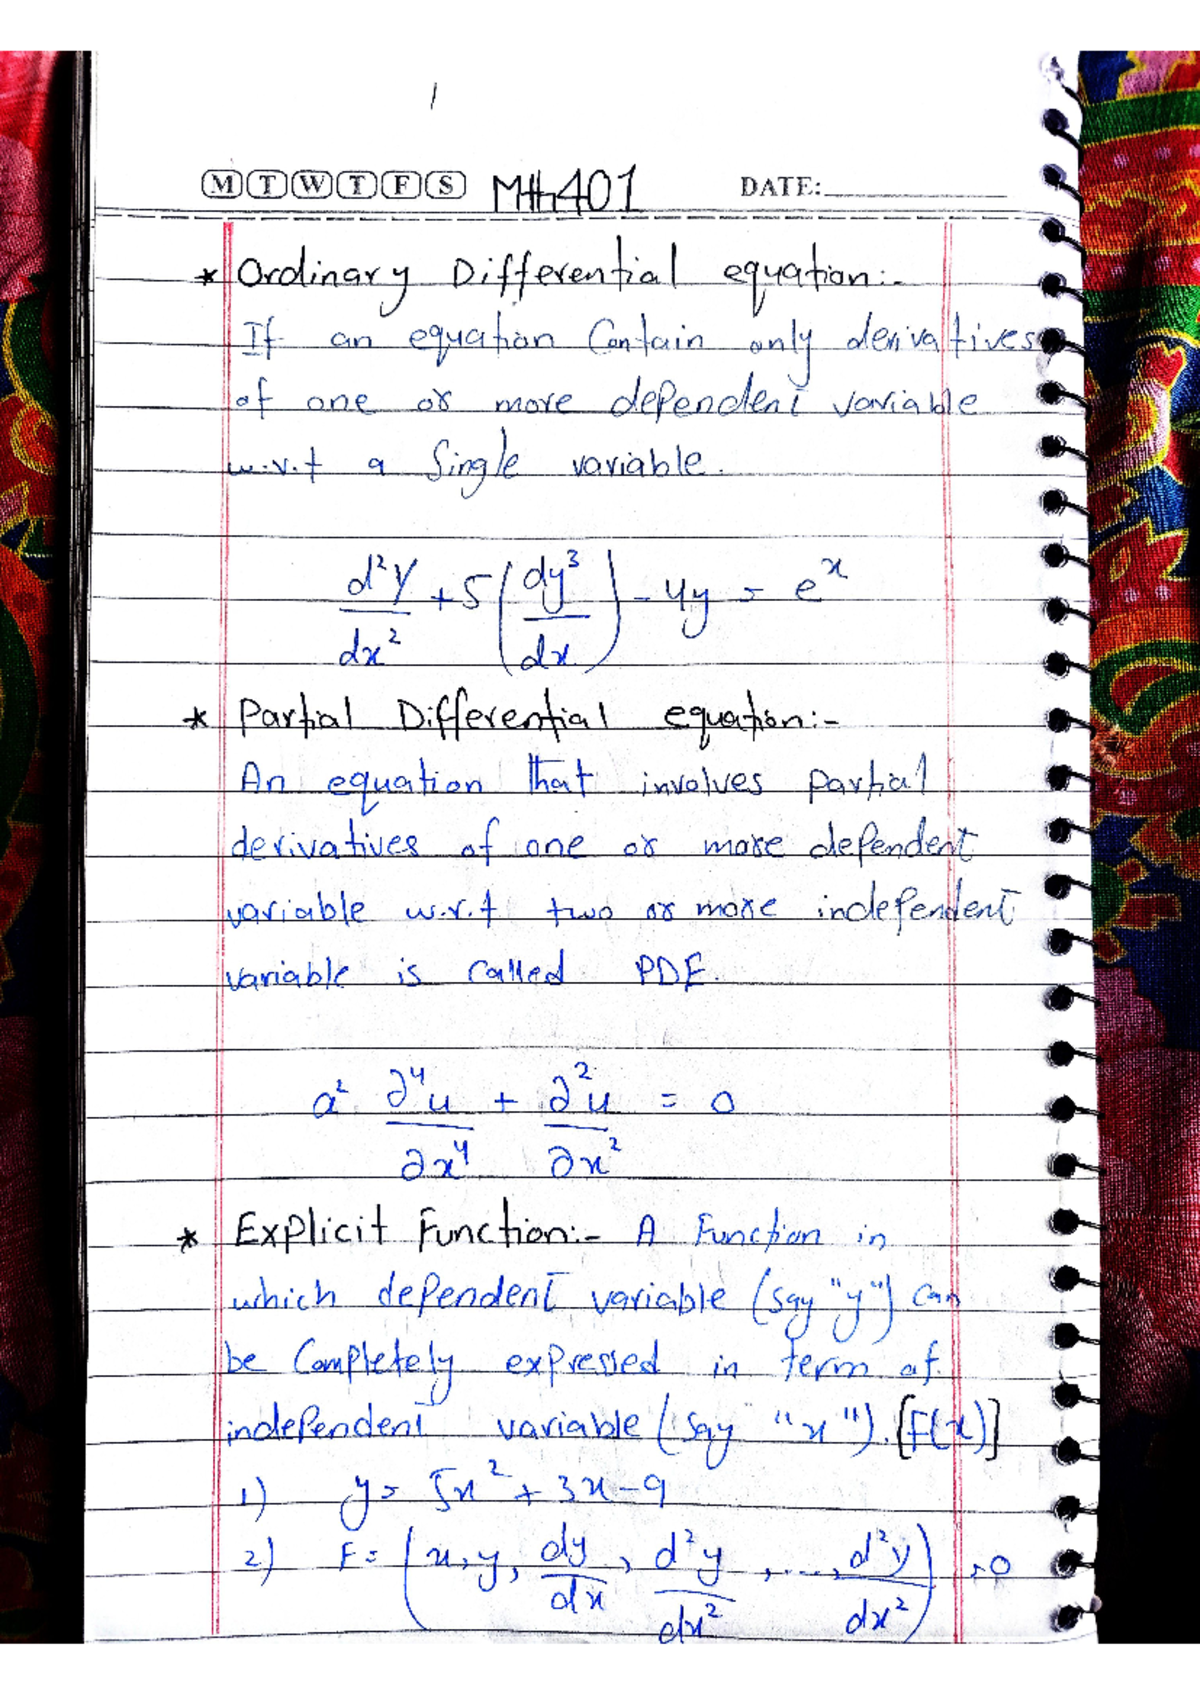 1
M T W T F S Mth401 DATE:
* Ordinary Differential equation:-
If an equation Contain only derivatives
of one or more dependent variable
w.r.t a Single variable.
d²y/dx² + 5(dy³/dx) - 4y = eˣ
* Partial Differential equation:-
An equation that involves partial
derivatives of one or more dependent
variable w.r.t two or more independent
variable is called PDE.
a² ∂⁴u/∂x⁴ + ∂²u/∂x² = 0
* Explicit Function:- A Function in
which dependent variable (say "y") can
be Completely expressed in term of
independent variable (say "x"). [F(x)]
1) y = 5x² + 3x - 9
2) F = (x, y, dy/dx, d²y/dx², ..., d²y/dx²) = 0